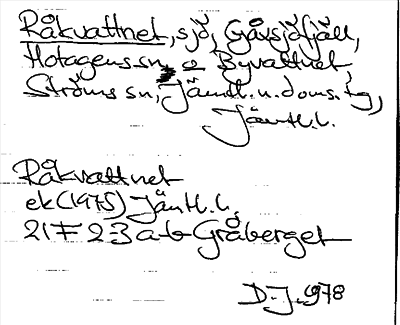 Råkvattnet, sjö, Gåxsjöfjäll,
Hotagens sn, o Byvattnet,
Ströms sn, Jämtl. n. doms. tg,
Jämtl. l.
Råkvattnet
ek (1975) Jämtl. l,
21 F 23 a-b Gråberget
D. J. 1978